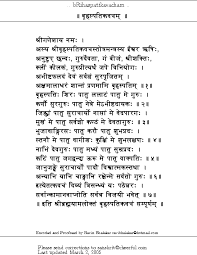 bRihaspatikavacham
॥ बृहस्पतिकवचम् ॥
श्रीगणेशाय नमः ।
अस्य श्रीबृहस्पतिकवचस्तोत्रमन्त्रस्य ईश्वर ऋषिः,
अनुष्टुप् छन्दः, गुरुर्देवता, गं बीजं, श्रीशक्तिः,
क्लीं कीलकं, गुरुप्रीत्यर्थं जपे विनियोगः ।
अभीष्टफलदं देवं सर्वज्ञं सुरपूजितम् ।
अक्षमालाधरं शान्तं प्रणमामि बृहस्पतिम् ॥ १॥
बृहस्पतिः शिरः पातु ललाटं पातु मे गुरुः ।
कर्णौ सुरगुरुः पातु नेत्रे मेऽभीष्टदायकः ॥ २॥
जिह्वां पातु सुराचार्यो नासां मे वेदपारगः ।
मुखं मे पातु सर्वज्ञो कण्ठं मे देवतागुरुः ॥ ३॥
भुजावाङ्गिरसः पातु करौ पातु शुभप्रदः ।
स्तनौ मे पातु वागीशः कुक्षिं मे शुभलक्षणः ॥ ४॥
नाभिं देवगुरुः पातु मध्यं पातु सुखप्रदः ।
कटिं पातु जगद्वन्द्य ऊरू मे पातु वाक्पतिः ॥ ५॥
जानुजङ्घे सुराचार्यो पादौ विश्वात्मकस्तथा ।
अन्यानि यानि चाङ्गानि रक्षेन्मे सर्वतो गुरुः ॥ ६॥
इत्येतत्कवचं दिव्यं त्रिसन्ध्यं यः पठेन्नरः ।
सर्वान्कामानवाप्नोति सर्वत्र विजयी भवेत् ॥ ७॥
॥ इति श्रीब्रह्मयामलोक्तं बृहस्पतिकवचं सम्पूर्णम् ॥
Encoded and Proofread by
Please send corrections to sanskrit@cheerful.com
Last updated March 2, 2005